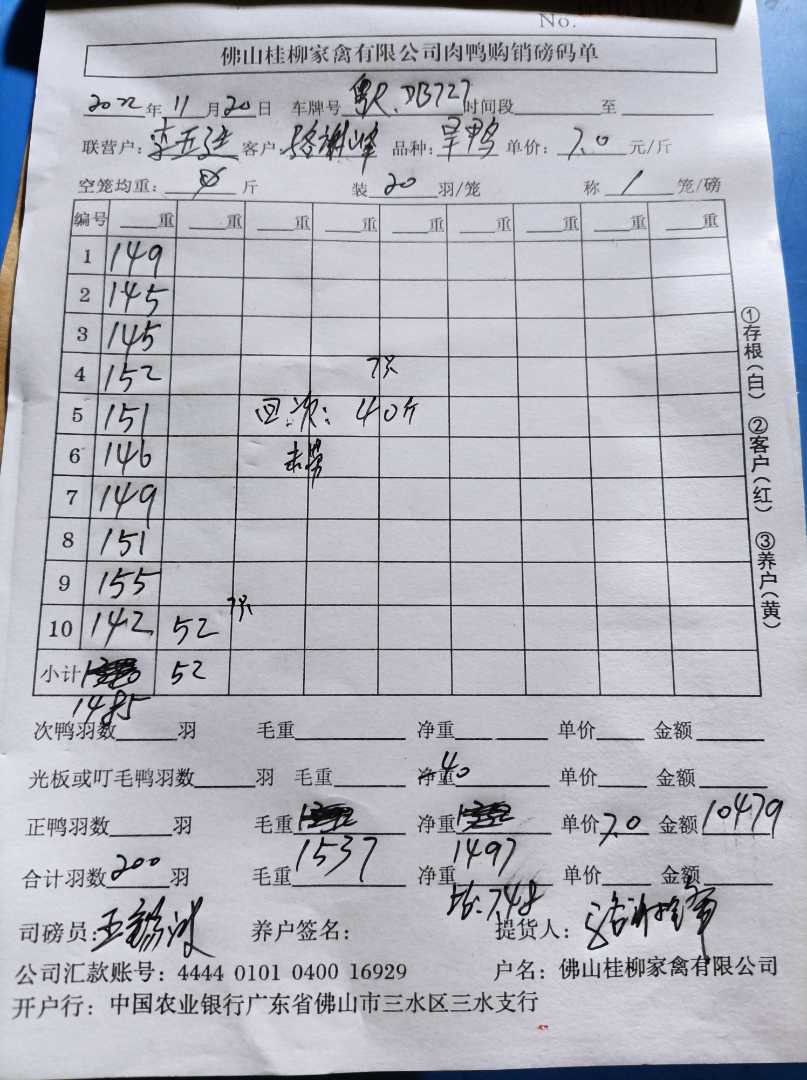 No.
佛山桂柳家禽有限公司肉鸭购销磅码单
2022年11月20日 车牌号粤R.DB727时间段 至
联营户: 客户 谢峰 品种: 旱鸭 单价: 7.0 元/斤
空笼均重: 0 斤 装 20 羽/笼 称 1 笼/磅
编号 重 重 重 重 重 重 重 重 重
1 149
2 145
3 145
4 152 7只
5 151 回次: 40斤
6 146
7 149
8 151
9 155
10 142 52 7只
小计 52
1485
①存根(白) ②客户(红) ③养户(黄)
次鸭羽数 羽 毛重 净重 单价 金额
光板或叮毛鸭羽数 羽 毛重 净重-40 单价 金额
正鸭羽数 羽 毛重 净重 单价7.0 金额10479
合计羽数200羽 毛重1537 净重1497 单价 金额
7.48
司磅员: 养户签名: 提货人:
公司汇款账号: 4444 0101 0400 16929 户名: 佛山桂柳家禽有限公司
开户行: 中国农业银行广东省佛山市三水区三水支行